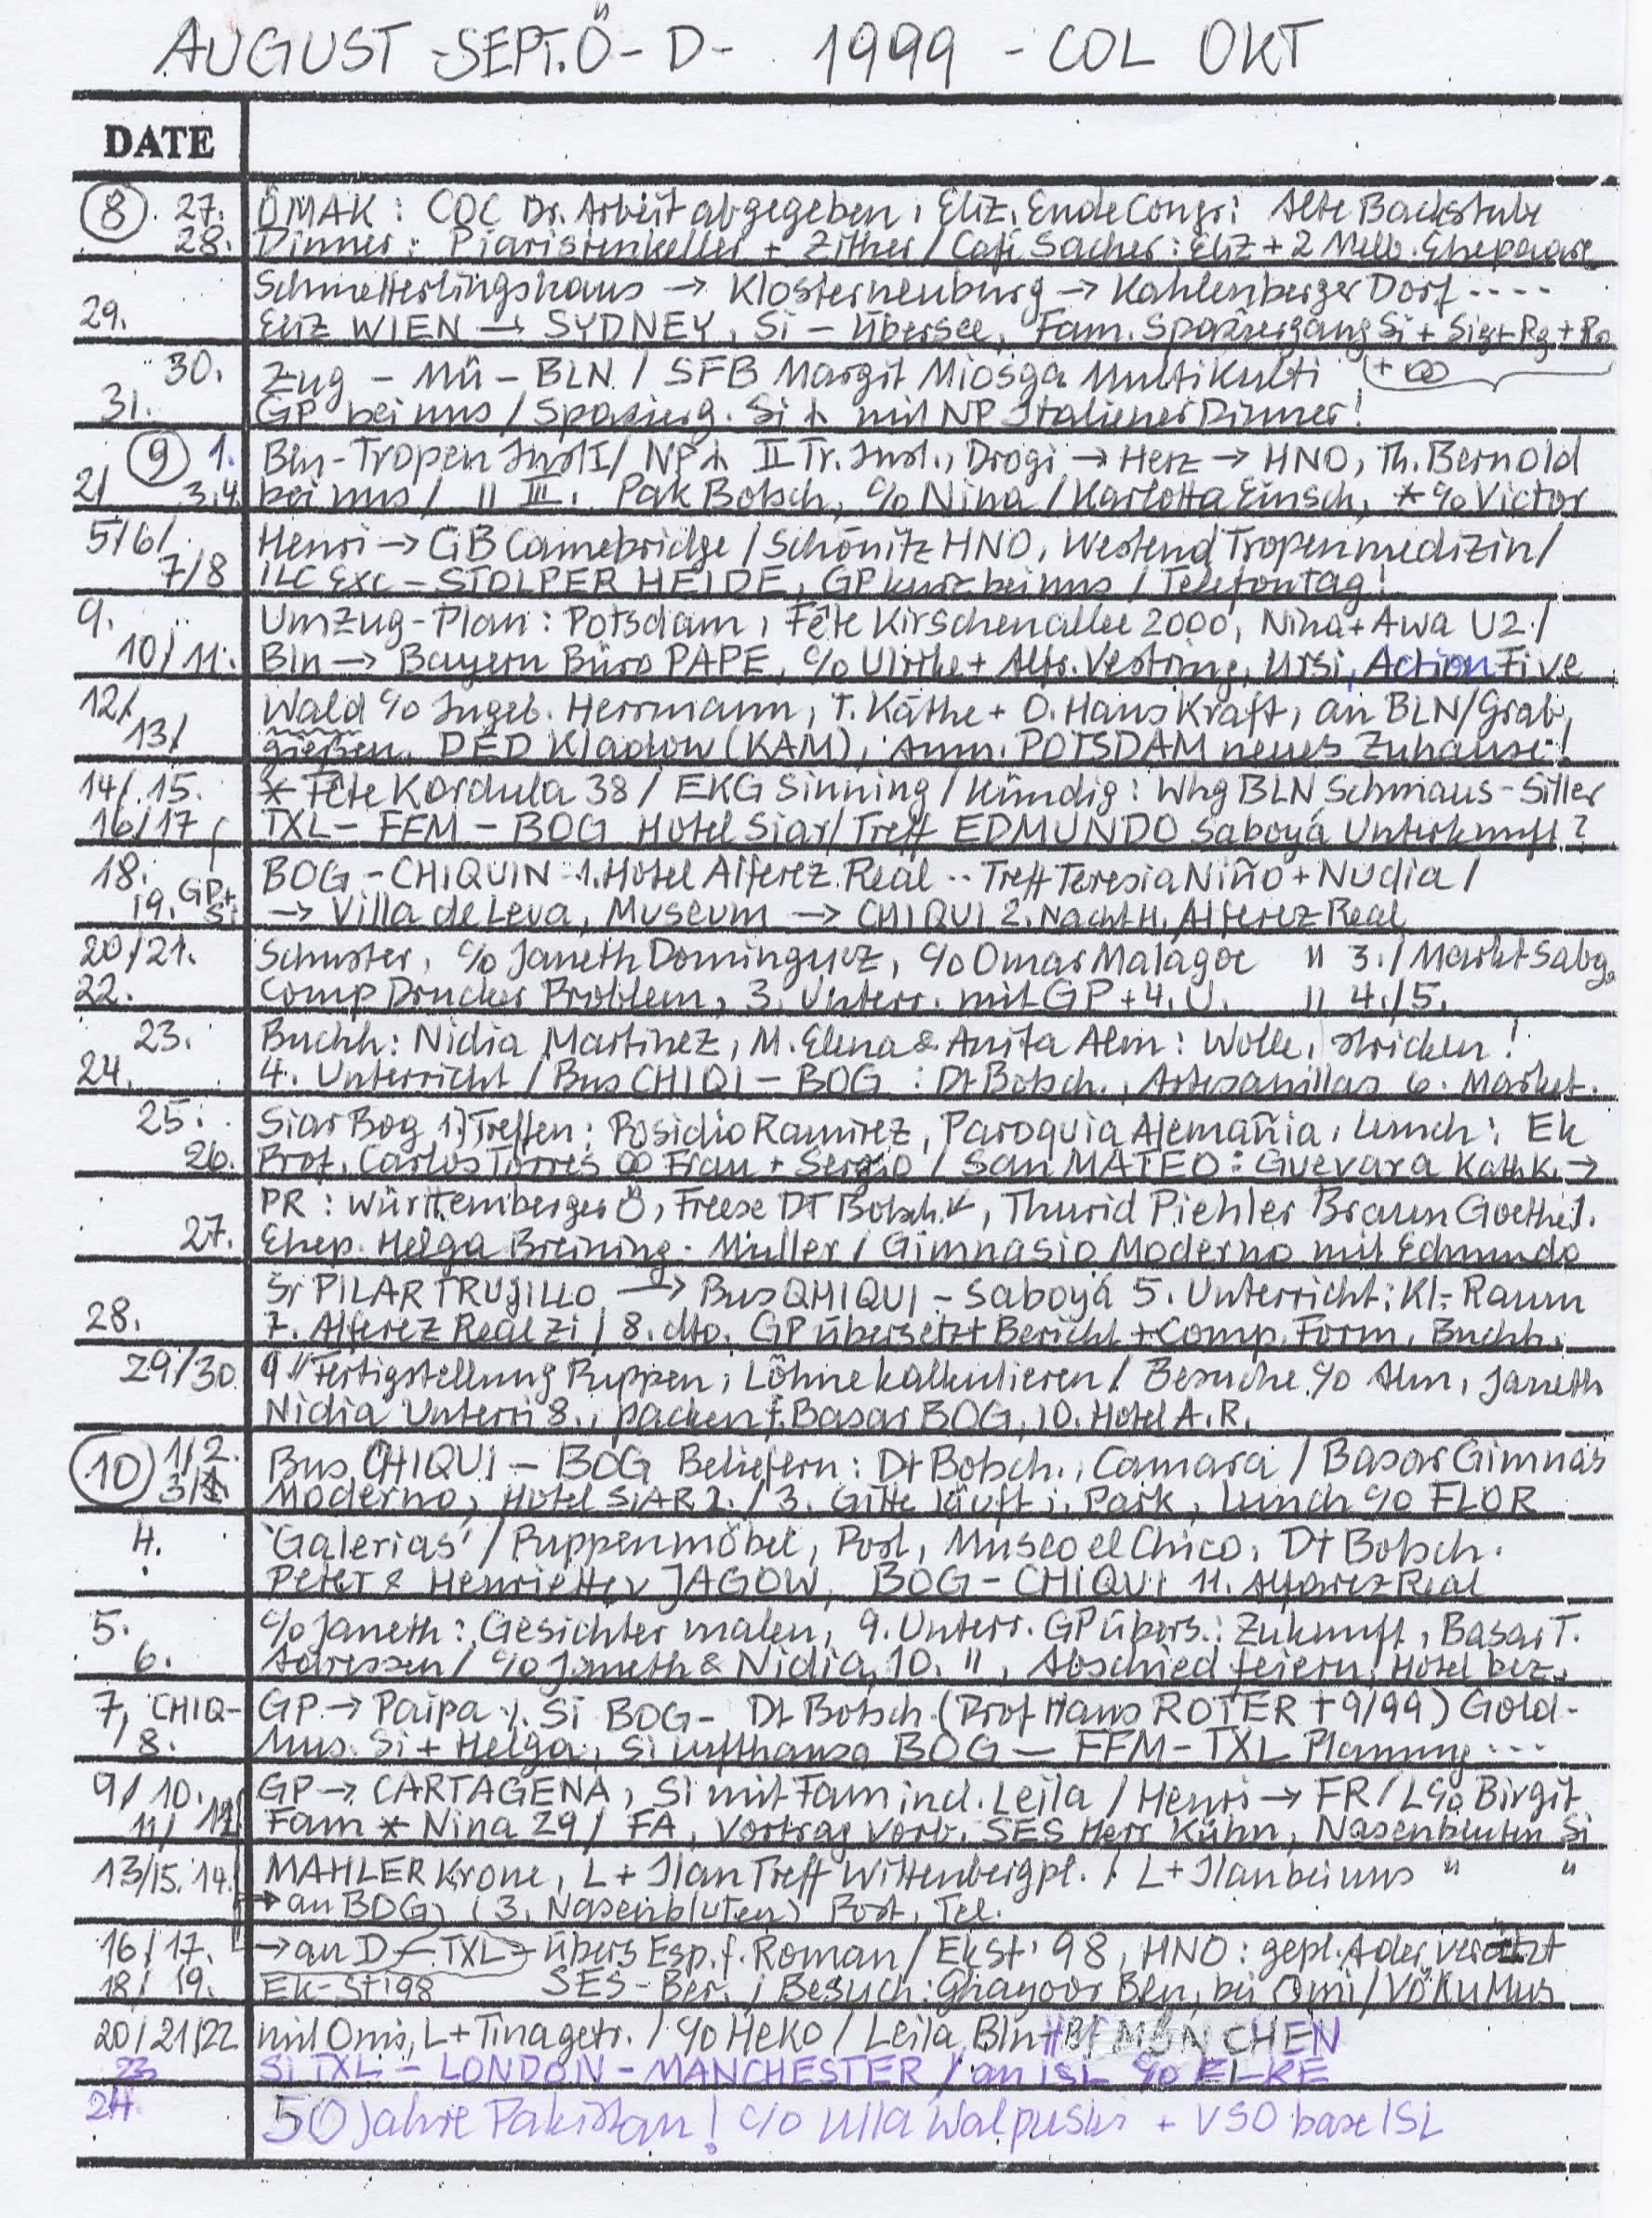 AUGUST - SEPT. Ö - D - 1999 - COL OKT
DATE
8. 27. ÖMAK: COC Dr. Arbeit abgegeben, Eliz. Ende Congr: Alte Backstube
28. Dinner: Piaristenkeller + Zither / Café Sacher: Eliz + 2 Melb. Ehepaare
Schmetterlingshaus → Klosterneuburg → Kahlenberger Dorf ....
29. Eliz WIEN → SYDNEY, Si - Übersee, Fam. Spaziergang Si + Sig + Rg + Ro
30. Zug - Mü - BLN / SFB Margit Miosga Multikulti + ∞
31. GP bei uns / Spazierg. Si mit NP Italiener Dinner!
9 1. Bln - Tropen Inst I / NP II Tr. Inst., Drogi → Herz → HNO, Th. Bernold
2/ 3.4. bei uns / " III. Pak Botsch, c/o Nina / Karlotta Einsch, * c/o Victor
5/6/ Henri → GB Camebridge / Schönitz HNO, Westend Tropenmedizin /
7/8 ILC Exc - STOLPER HEIDE, GP kurz bei uns / Telefontag!
9. Umzug - Plan: Potsdam, Fête Kirschenallee 2000, Nina + Awa U2 /
10/11. Bln → Bayern Büro PAPE, c/o Ulrike + Alfr. Vestring, Ursi, Action Five
12/ Wald c/o Ingeb. Herrmann, T. Käthe + O. Hans Kraft, an BLN / Grab
13/ gießen, DED Kladow (KAM), Anm. POTSDAM neues Zuhause!
14/. 15. * Fête Kordula 38 / EKG Sinning / Kündig: Whg BLN Schmaus - Siller
16/17 TXL - FFM - BOG Hotel Siar / Treff EDMUNDO Saboyá Unterkunft?
18. BOG - CHIQUIN 1. Hotel Alferez Real .. Treff Teresia Niño + Nudia /
19. GP + Si → Villa de Leva, Museum → CHIQUI 2. Nacht H. Alferez Real
20/21. Schuster, c/o Janeth Dominguez, c/o Omar Malagoe " 3. / Markt Sabg.
22. Comp Drucker Problem, 3. Unterr. mit GP + 4. U. " 4./5.
23. Buchh: Nidia Martinez, M. Elena & Anita Alm: Wolle, stricken!
24. 4. Unterricht / Bus CHIQI - BOG: Dt Botsch., Artesanillas 6. Market.
25. Siar Bog 1.) Treffen: Posidio Ramirez, Paroquia Alemañia, Lunch: Ek
26. Prof. Carlos Torres ∞ Frau + Sergio / San MATEO: Guevara Kath K. →
PR: Württemberger Ö, Freese DT Botsch., Thurid Piehler Braun Goethe I.
27. Ehep. Helga Breining - Müller / Gimnasio Moderno mit Edmundo
Sr PILAR TRUJILLO → Bus QHIQUI - Saboyá 5. Unterricht: Kl. Raum
28. 7. Alferez Real Zi / 8. dto. GP übersetzt Bericht + Comp. Form, Buchh.
29/30 9 " Fertigstellung Puppen, Löhne kalkulieren / Besuche c/o Alm, Janeth
Nidia Unterri 8., packen f. Basar BOG, 10. Hotel A.R.
10 1/2. Bus CHIQUI - BOG Beliefern: Dt Botsch., Camara / Basar Gimnas
3/ Moderno, Hotel SIAR 2. / 3. Gitte läuft i. Park, Lunch c/o FLOR
4. 'Galerias' / Puppenmöbel, Post, Museo el Chico, Dt Botsch.
Peter & Henriette v JAGOW, BOG - CHIQUI 11. Alferez Real
5. c/o Janeth: Gesichter malen, 9. Unterr. GP übers.: Zukunft, Basar T.
6. Adressen / c/o Janeth & Nidia, 10. ", Abschied feiern, Hotel bez.
7, CHIQ- GP → Paipa %. Si BOG - Dt Botsch. (Prof Hans ROTER + 9/99) Gold-
/8. Mus. Si + Helga, Si Lufthansa BOG - FFM - TXL Planung ...
9/10. GP → CARTAGENA, Si mit Fam incl. Leila / Henri → FR / L c/o Birgit
11/ 12 Fam * Nina 29 / FA, Vortrag Vorb. SES Herr Kühn, Nasenbluten Si
13/15. 14. MAHLER Krone, L + Ilan Treff Wittenbergpl. / L + Ilan bei uns " "
→ an BOG, (3. Nasenbluten) Post, Tel.
16/17. → an D - TXL - übers Esp. f. Roman / Ek St. 98, HNO: gepl. Ader verätzt
18/ 19. Ek - St 98 SES - Ber. / Besuch: Ghayoor Bln, bei Omi / VöKuMus
20/21/22 mit Omi, L + Tina getr. / c/o HeKo / Leila Bln MÜNCHEN
23 Si TXL - LONDON - MANCHESTER / an ISL c/o ELKE
24. 50 Jahre Pakistan! c/o Ulla Walpuski + VSO base ISL